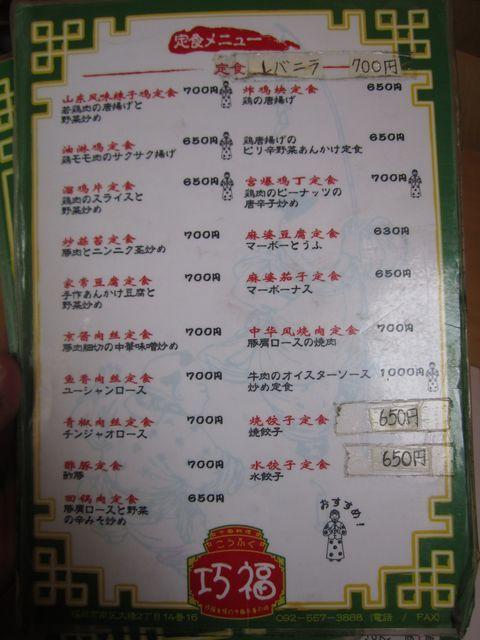 定食メニュー
定食 レバニラ 700円
山东风味辣子鸡定食 700円
若鶏肉の唐揚げと
野菜炒め
油淋鸡定食 650円
鶏モモ肉のサクサク揚げ
溜鸡片定食 650円
鶏肉のスライスと
野菜炒め
炒蒜苔定食 700円
豚肉とニンニク茎炒め
家常豆腐定食 700円
手作あんかけ豆腐と
野菜炒め
京酱肉丝定食 700円
豚肉細切の中華味噌炒め
鱼香肉丝定食 700円
ユーシャンロース
青椒肉丝定食 700円
チンジャオロース
酢豚定食 700円
酢豚
回锅肉定食 650円
豚肩ロースと野菜
の辛みそ炒め
炸鸡块定食 650円
鶏の唐揚げ
鶏唐揚げの 650円
ピリ辛野菜あんかけ定食
宫爆鸡丁定食 700円
鶏肉のピーナッツの
唐辛子炒め
麻婆豆腐定食 630円
マーボーとうふ
麻婆茄子定食 650円
マーボーナス
中华风烧肉定食 700円
豚肩ロースの焼肉
牛肉のオイスターソース 1000円
炒め定食
烧饺子定食 650円
焼餃子
水饺子定食 650円
水餃子
おすすめ!
中国料理
こうふく
巧福
福岡市南区大橋2丁目14番16
092-557-3888 (電話 / FAX)